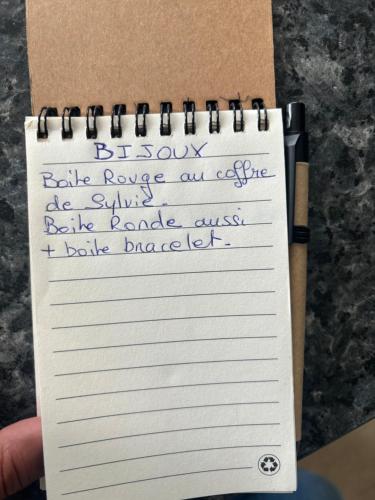 BIJOUX
Boite Rouge au coffre
de Sylvie.
Boite Ronde aussi
+ boite bracelet.